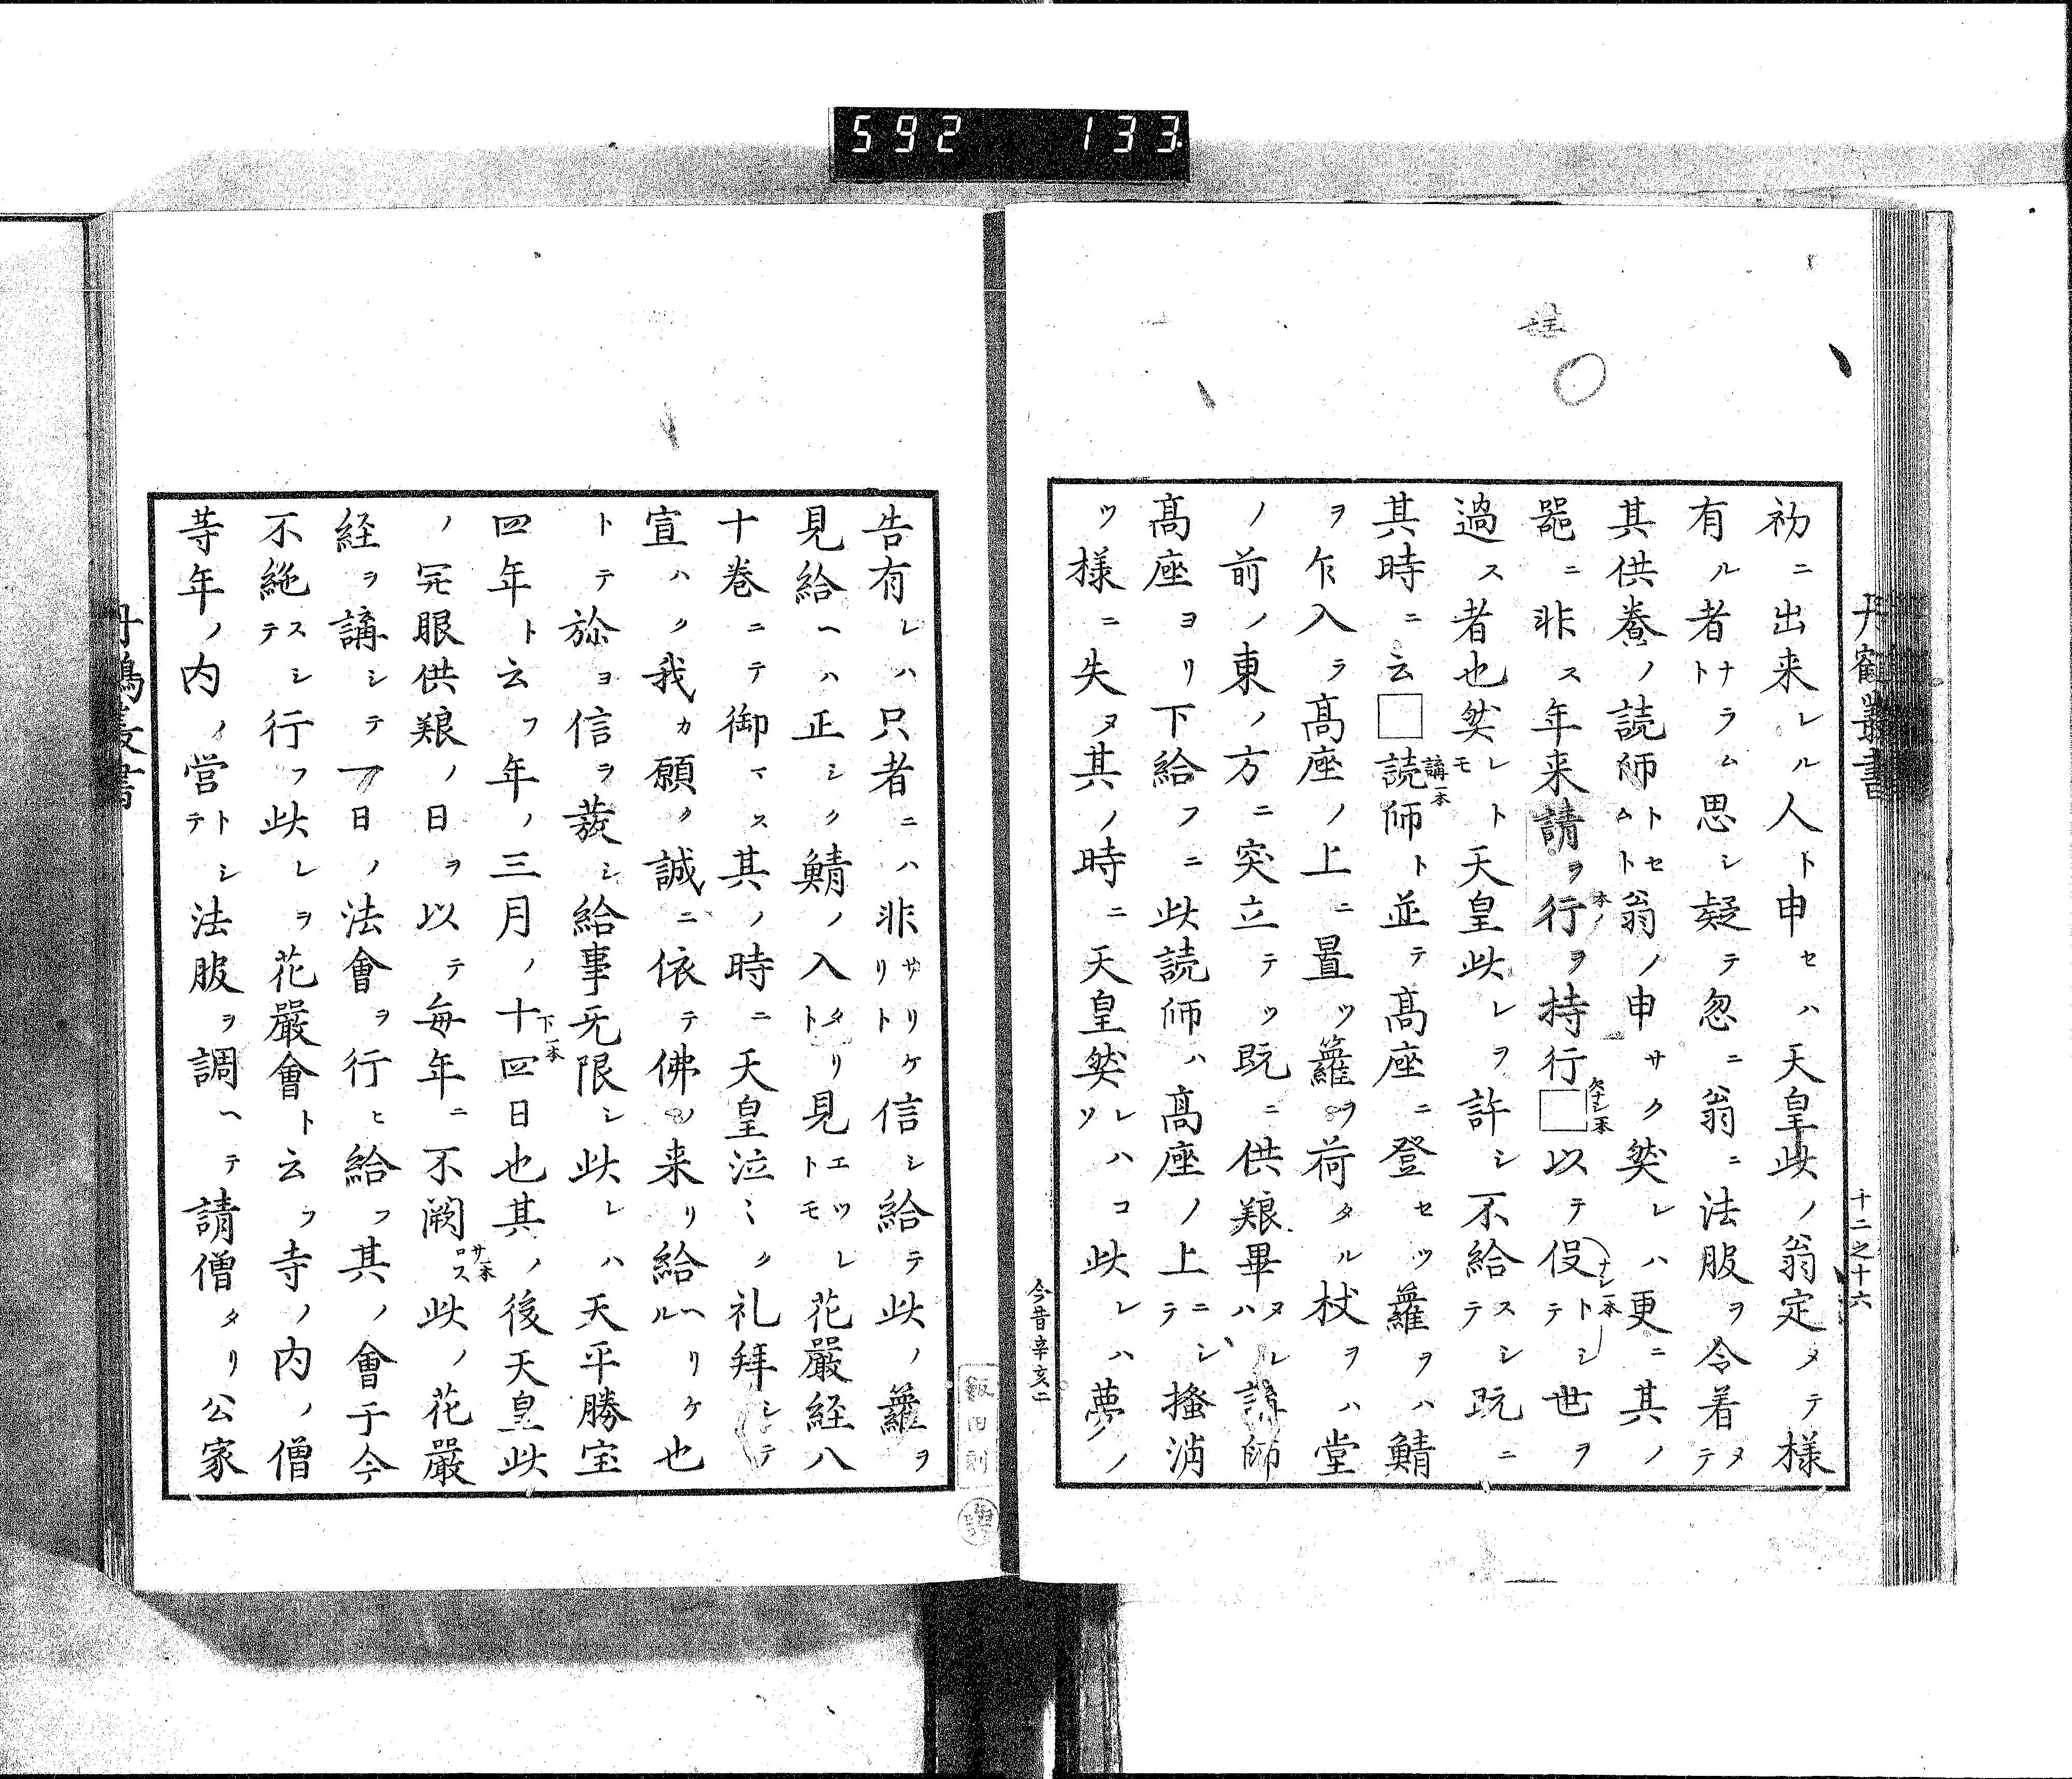 592 133
丹鶴叢書
十二之十六
初ニ出来レル人ト申セハ天皇此ノ翁定メテ様
有ル者ナラムト思シ疑テ忽ニ翁ニ法服ヲ令着メテ
其供養ノ読師トセムト翁ノ申サク然レハ更ニ其ノ
器ニ非ス年来請ヲ行ヲ持行□以テ役トシテ世ヲ
本ノ
欠ナシ一本
ナシ一本
過ス者也然レトモ天皇此レヲ許シ不給スシテ既ニ
其時ニ云□読師ト並テ高座ニ登セツ籮ヲハ鯖
講一本
ヲ乍入ラ高座ノ上ニ置ツ籮ヲ荷タル杖ヲハ堂
ノ前ノ東ノ方ニ突立テツ既ニ供養畢ヌレハ講師
高座ヨリ下給フニ此読師ハ高座ノ上ニシテ掻消
ツ様ニ失ヌ其ノ時ニ天皇然レハコ此レハ夢ノ
今昔辛亥二
告有レハ只者ニハ非サリケリト信シ給テ此ノ籮ヲ
見給ヘハ正シク鯖ノ入タリト見エツレトモ花厳経八
十巻ニテ御マス其ノ時ニ天皇泣ミク礼拜シテ
宣ハク我カ願ク誠ニ依テ佛ノ来リ給ヘルリケ也
トテ旀ヨ信ヲ發シ給事无限シ此レハ天平勝宝
四年ト云フ年ノ三月ノ十四日也其ノ後天皇此
下一本
ノ開眼供養ノ日ヲ以テ毎年ニ不闕ロス此ノ花嚴
サ一本
経ヲ講シテ一日ノ法會ヲ行ヒ給フ其ノ會于今
不絶スシテ行フ此レヲ花嚴會ト云フ寺ノ内ノ僧
等年ノ内ノ営トシテ法服ヲ調ヘテ請僧タリ公家